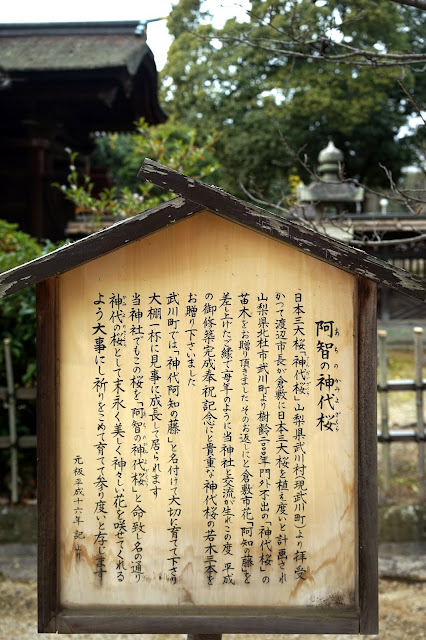 阿智の神代桜
あちのかみよざくら
日本三大桜「神代桜」山梨県武川村(現武川町)より拝受
かつて渡辺市長が倉敷に日本三大桜を植え度いと計画され
山梨県北杜市武川町より樹齢二〇〇〇年門外不出の「神代桜」の
苗木をお贈り頂きました そのお返しにと倉敷市花「阿知の藤」を
差し上げたご縁で毎年のように当神社と交流が生れこの度、平成
の御修築完成奉祝記念にと貴重な神代桜の若木三本を
お贈り下さいました
武川町では「神代阿知の藤」と名付けて大切に育てて下さり
大棚一杯に見事に成長して居られます
当神社でもこの桜を「阿智の神代桜」と命致し名の通り
神代の桜として末永く美しく神々しい花を咲せてくれる
よう大事にし祈りをこめて育てて参り度いと存じます
元板平成十六年記より